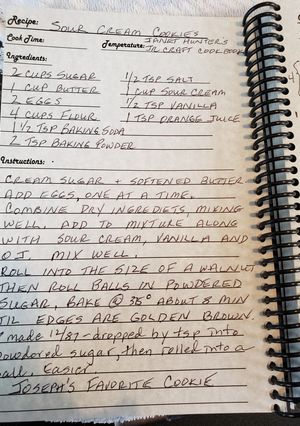 Recipe: SOUR CREAM COOKIES
Cook Time: Temperature: JANET HUNTER'S
JR CRAFT COOKBOOK
Ingredients:
2 CUPS SUGAR 1/2 TSP SALT
1 CUP BUTTER 1 CUP SOUR CREAM
2 EGGS 1/2 TSP VANILLA
4 CUPS FLOUR 1 TSP ORANGE JUICE
1 1/2 TSP BAKING SODA
2 TSP BAKING POWDER
Instructions:
CREAM SUGAR + SOFTENED BUTTER
ADD EGGS, ONE AT A TIME.
COMBINE DRY INGREDIETS, MIXING
WELL. ADD TO MIXTURE ALONG
WITH SOUR CREAM, VANILLA AND
O.J. MIX WELL.
ROLL INTO THE SIZE OF A WALNUT
THEN ROLL BALLS IN POWDERED
SUGAR. BAKE @ ° ABOUT 8 MIN
TIL EDGES ARE GOLDEN BROWN.
I made 12/87 - dropped by tsp into
powdered sugar, then rolled into a
ball. Easier.
JOSEPH'S FAVORITE COOKIE